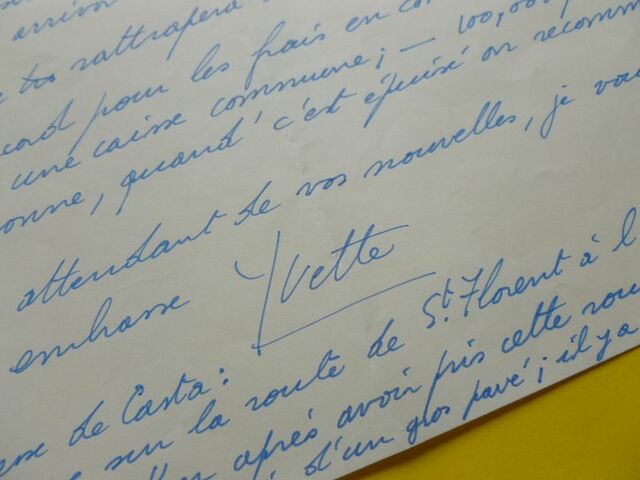 arrivo
rattrapera
cord pour les frais en co
une caisse commune ; — 100,000
onne, quand c'est épuisé on recomm
attendant de vos nouvelles, je vou
embrasse Yvette
de Casta :
sur la route de St. Florent à l
après avoir pris cette rou
d'un gros pavé ; il y a